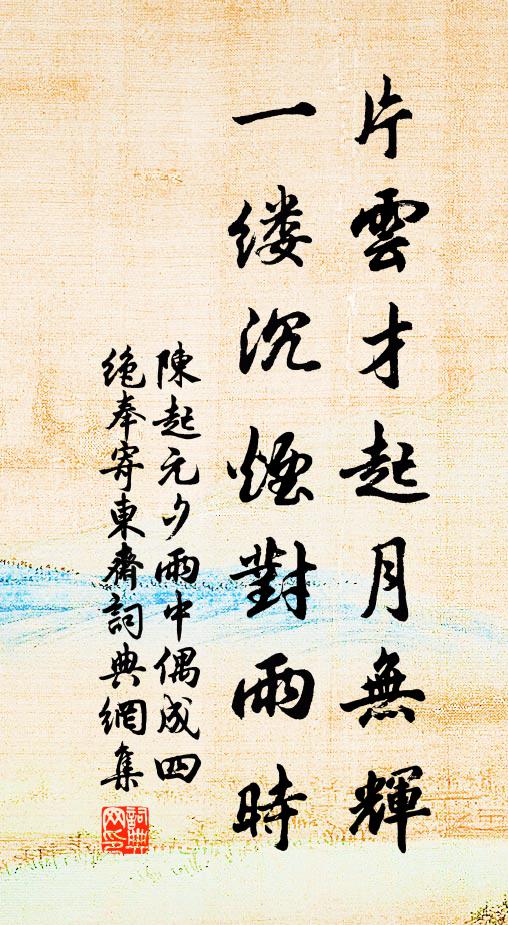 片雲才起月無輝
一缕沉煙對雨時
陳起元夕雨中偶成四
絶奉寄東齋詞典網集
詞典网印